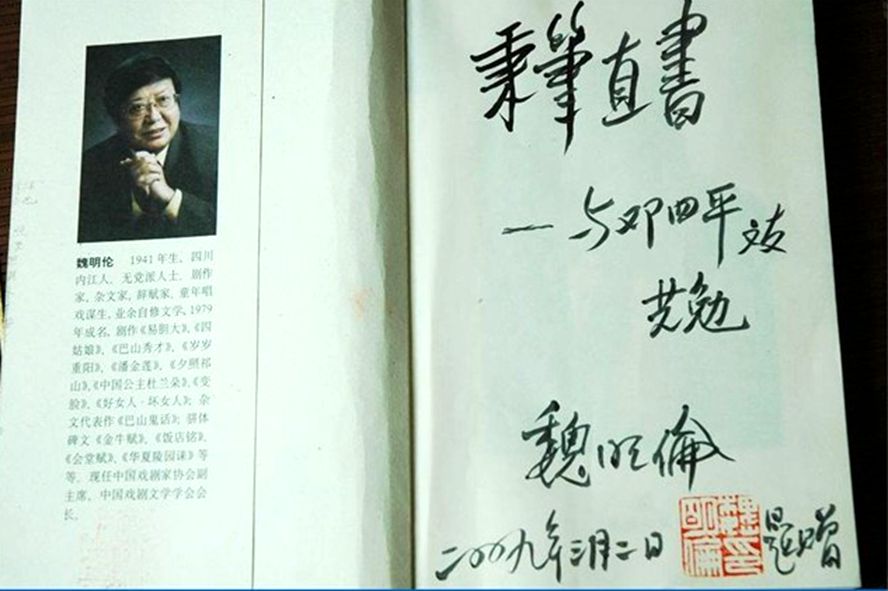 魏明伦 1941年生,四川
内江人。无党派人士。剧作
家,杂文家,辞赋家。童年唱
戏谋生,业余自修文学,1979
年成名,剧作《易胆大》、《四
姑娘》、《巴山秀才》、《岁岁
重阳》、《潘金莲》、《夕照祁
山》、《中国公主杜兰朵》、《变
脸》、《好女人·坏女人》;杂
文代表作《巴山鬼话》;骈体
碑文《金牛赋》、《饭店铭》、
《会堂赋》、《华夏陵园诔》等
等。现任中国戏剧家协会副
主席,中国戏剧文学学会会
长。
秉筆直書
—与邓四平文友
共勉
魏明倫
二00九年三月二日
题赠